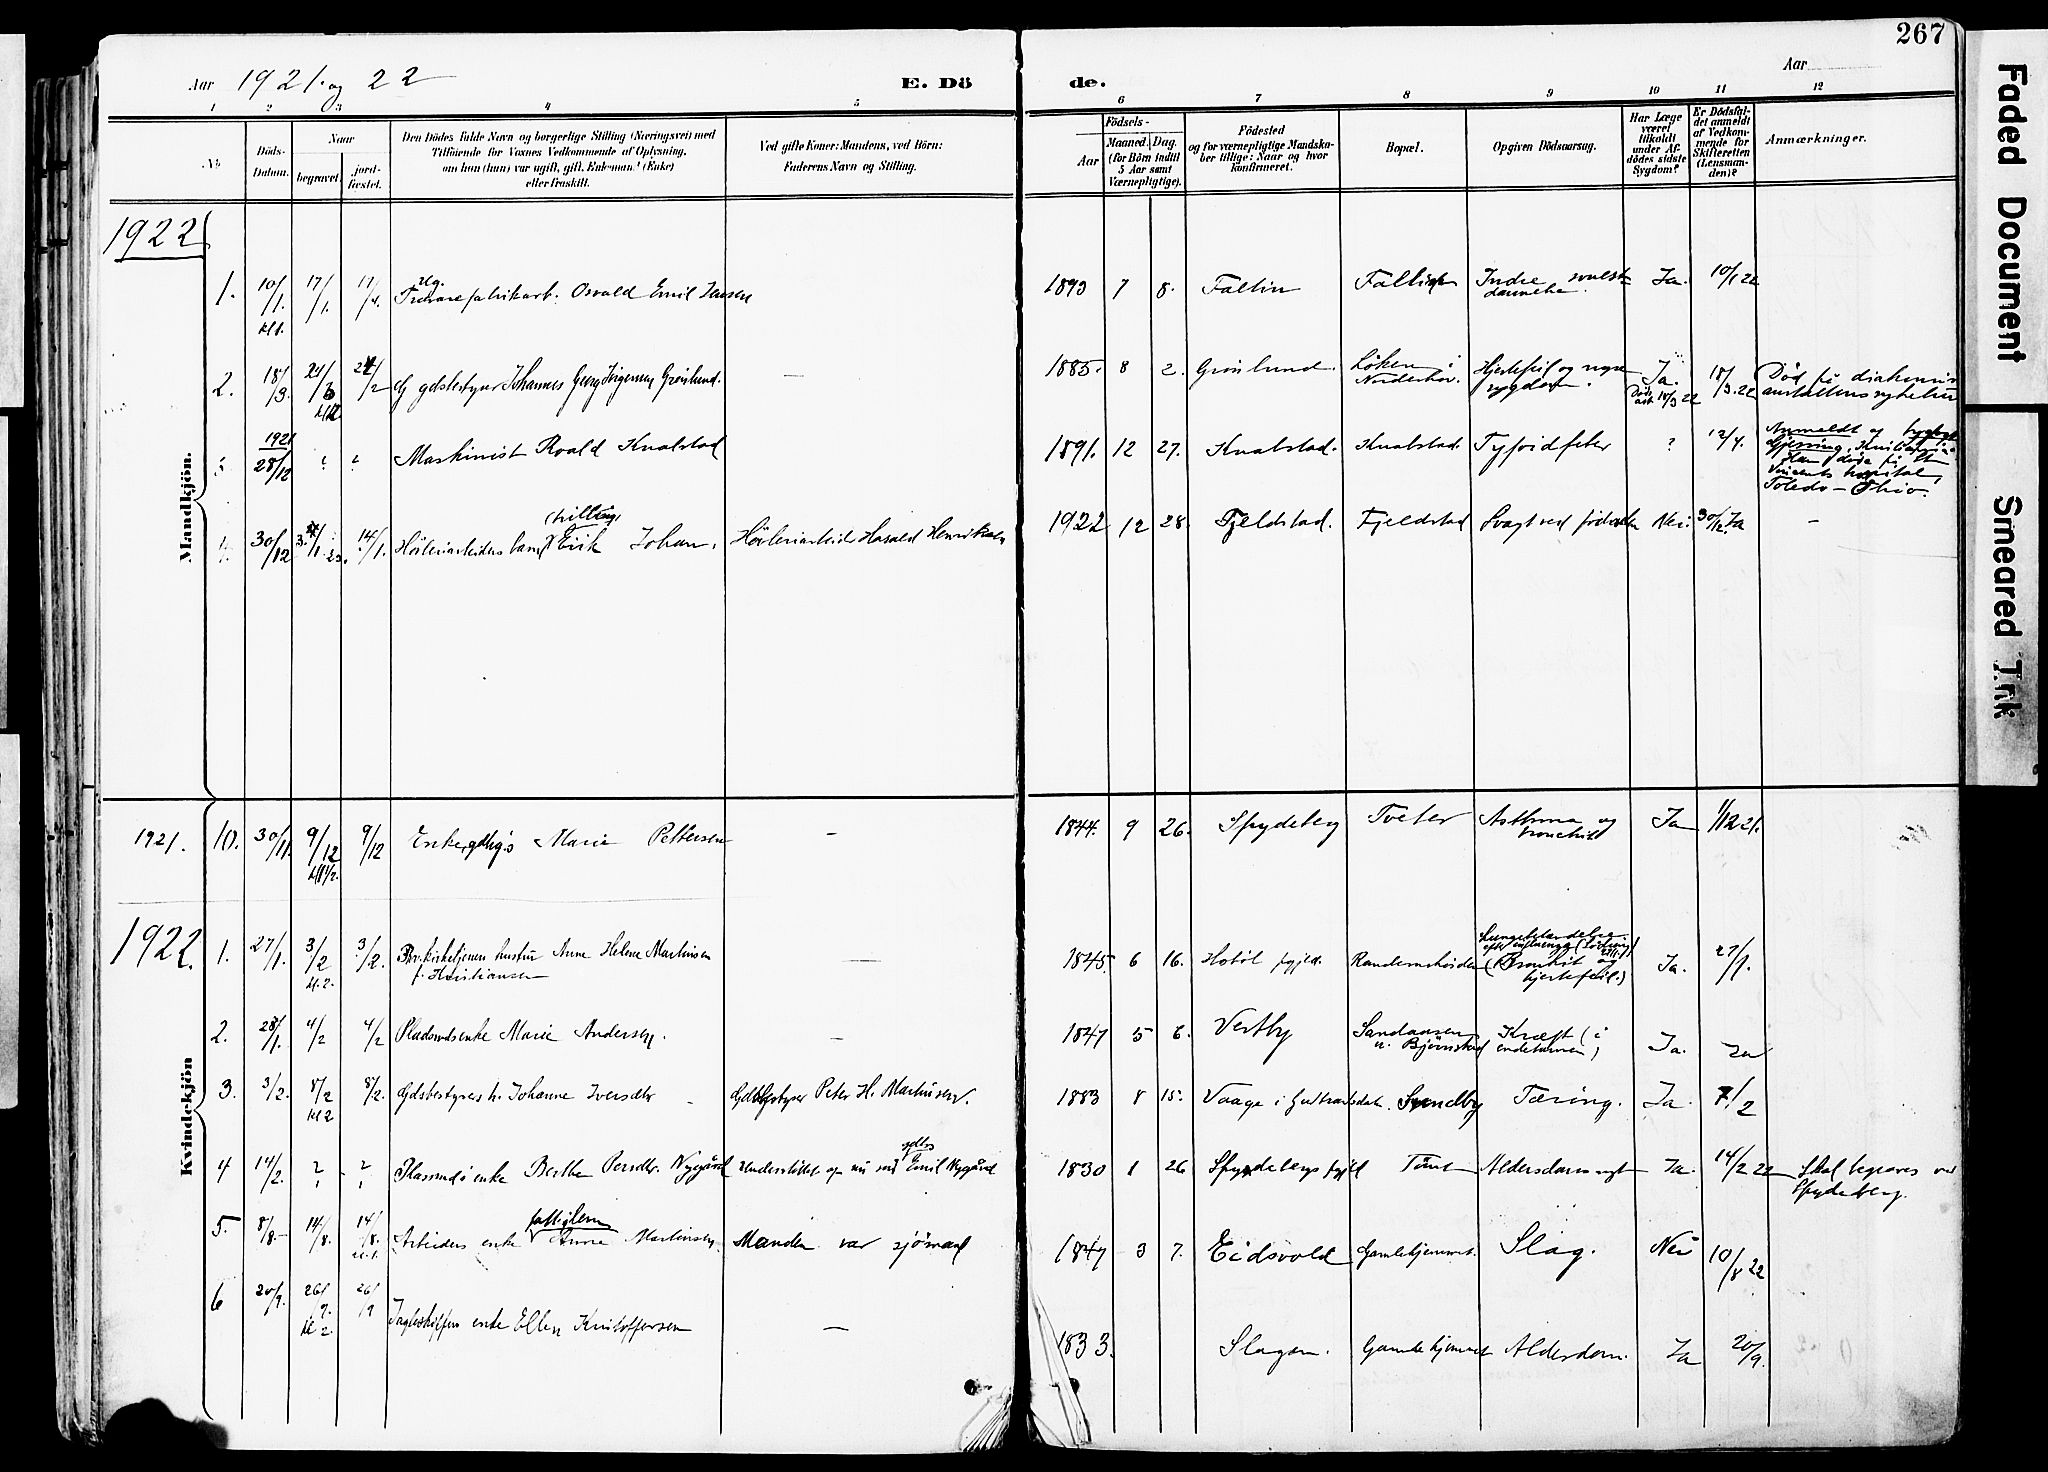 267
Aar 1921. og 22
E. Dö
de.
Aar
1 2 3 4 5 6 7 8 9 10 11 12
No.
Döds-Datum.
Naar
begravet.
jord-fæstet.
Den Dödes fulde Navn og borgerlige Stilling (Næringsvei) med
Tilföiende for Voxnes Vedkommende af Oplysning,
om hun (han) var ugift, gift, Enkeman (Enke)
eller fraskilt.
Ved gifte Koner: Mandens, ved Börn:
Faderens Navn og Stilling.
Födsels-
Aar
Maaned. Dag.
(for Börn indtil
5 Aar samt
Værnepligtige).
Födested
og for værnepligtige Mandska-
ber tillige: Naar og hvor
konfirmeret.
Bopæl.
Opgiven Dödsaarsag.
Har Læge
været
tilkaldt
under Af-
dödes sidste
Sygdom?
Er Dödsfal-
det anmeldt
af Vedkom-
mende for
Skifteretten
(Lensman-
den)?
Anmærkninger.
1922
Mandkjön.
1. 10/1. kl 1. 17/1. 17/1. Ug. Trævarefabrikarb. Osvald Emil Jensen — 1893 7 8. Faltin Faltin Indre svulst dannelse. Ja. 10/1 22
2. 18/3. 24/3 24/2 Johannes Georg Jørgensen Grønlund. — 1885. 8 2. Grønlund. Løken i Norderhov. Hjertefeil og nyre sygdom. Ja. 18/3 22 18/3.22 Død på diakonis anstaltens sykehus
3. 1921 28/12 ? ? Maskinist Roald Knalstad 1891. 12 27. Knalstad. Knalstad. Tyfoidfeber ? 12/4. Anmeldt og
Han døde på St
Vincents hospital,
Toledo — Ohio.
4. 30/12 14/1. (tvilling) Erik Johan. Høvleriarbeider Harald Henriksen 1922 12 28. Fjeldstad. Fjeldstad Svagt ved fødselen Nei. 30/12. Ja —
Kvindekjön
1921. 10. 30/11. 9/12 9/12 Enke Marie Pettersen — 1844. 9 26. Spydeberg Tveter Asthma og bronchit Ja 1/12 21.
1922. 1. 27/1. 3/2 kl. 2. 3/2. kirketjener hustru Anne Helene Martinsen
f. Kristiansen — 1845 6 16. Hobøl Lungebetændelse
(Bronkit og
hjertefeil.) Ja. 27/1.
2. 28/1. 4/2 4/2 Pladsmdsenke Marie Andersen. — 1847 5 6. Vestby Sandaasen
u. Bjørnstad Kræft (i
endetarmen) Ja. Ja
3. 3/2. 8/2 kl 2 8/2. Gdsbestyrers h. Johanne Iversdtr Gdsbestyrer Peter H. Martinsen. 1883 8 15. Vaage i Gudbrandsdal. Sundby Tæring. Ja. 7/2
4 14/2. ? ? Plassmds enke Berthe Persdtr. Nygård Understøttet av nu Emil Nygård 1830 1 26 Spydeberg Tomt Aldersdomssvagt Ja. 14/2 22 Skal begraves ved
Spydeberg.
5. 8/8. 14/8. 14/8. Arbeiders enke fattiglem Anne Martinsen. Manden var sjömand 1847 3 7. Eidsvold Gamlehjemmet. Slag. Nei 10/8 22
6 20/9. 26/9. kl 2. 26/9 enke Ellen Kristoffersen — 1833. Slagen. Gamlehjemmet Alderdom. Ja 20/9.
Faded Document
Smeared Ink